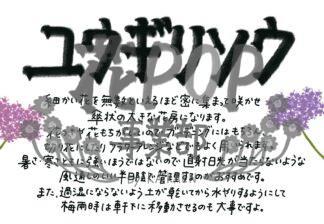 ユウギリソウ
細かい花を無数といえるほど密に集まって咲かせ
傘状の大きな花房になります。
花つき、花もちがよいのでガーデニングにはもちろん、
切り花にしたりフラワーアレンジなどでもよく用いられます。
暑さ・寒さともに強いほうではないので直射日光が当たらないような
風通しのいい半日陰で管理するのがおすすめです。
また、過湿にならないよう土が乾いてから水やりするようにして
梅雨時は軒下に移動させるのも大事ですよ。
花POP